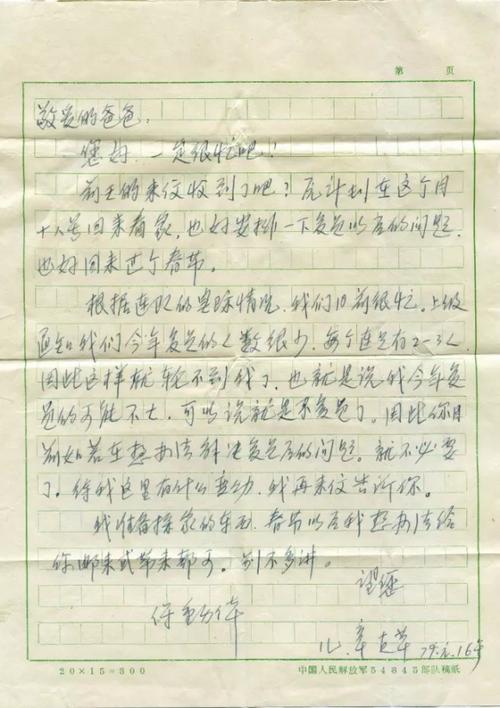 第 页
敬爱的爸爸:
您好,一定很忙吧!
前天的来信收到了吧?原计划在这个月
十八号回来看家,也好安排一下复员以后的问题,
也好回来过个春节。
根据连队的实际情况,我们目前很忙。上级
通知我们今年复员的人数很少,每个连只有2-3人
因此这样就轮不到我了,也就是说我今年复
员的可能不大,可以说就是不复员了。因此你目
前如若在想办法解决复员后的问题,就不必要
了。待我这里有什么变动,我再来信告诉你。
我准备探家的东西,春节以后我想办法给
你邮来或带来都可。别不多讲。
望您
保重身体
儿 草 79.元.16号
20×15=300 中国人民解放军54845部队稿纸